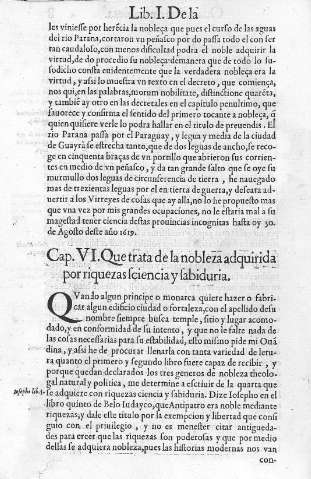 Lib. I. De la
les viniesse por herẽcia la nobleça que pues el curso de las aguas
del rio Parana, cortaron vn peñasco por do passa todo el con ser
tan caudaloso, con menos dificultad podra el noble adquirir la
virtud, de do procedio su nobleça: demanera que de todo lo su-
sodicho consta euidentemente que la verdadera nobleça era la
virtud, y assi lo muestra vn texto en el decreto, que comiença,
nos qui, en las palabras, morum nobilitate, distinctione quarẽta,
y tambiẽ ay otro en las decretales en el capitulo penultimo, que
fauorece y confirma el sentido del primero tocante a nobleça, si
quien quisiere verle lo podra hallar en el titulo de prebendis. El
rio Parana passa por el Paraguay, y legua y media de la ciudad
de Guayrà se estrecha tanto, que de dos leguas de ancho, se reco-
ge en cinquenta braças de vn pornillo que abrieron sus corrien-
tes en medio de vn peñasco, y da tan grande salto que se oye su
murmullo dos leguas de circunferencia de tierra, he nauegado
mas de trezientas leguas por el en tierra de guerra, y desseata ad-
uertir a los Virreyes de cosas que ay alla, no lo he propuesto mas
que vna vez por mis grandes ocupaciones, no le estaria mal a su
magestad tener ciencia destas prouincias incognitas hasta oy 30.
de Agosto deste año 1619.
Cap. VI. Que trata de la nobleza adquirida
por riquezas sciencia y sabiduria.
QVando algun principe o monarca quiere hazer o fabri-
car algun edificio ciudad o fortaleza, con el apellido de su
nombre siempre busca temple, sitio y lugar acomo-
dado, y en conformidad de su intento, y que no le falte nada de
las cosas necessarias para su estabilidad, esto mismo pide mi Ouã
dina, y assi he de procurar llenarla con tanta variedad de letu-
ra quanto el primero y segundo libro fuere capaz de recibir, y
porque quedan declarados los tres generos de nobleza theolo-
gal natural y politica, me determine a escriuir de la quarta que
Iosepho lib. 5.
se adquiere con riquezas ciencia y sabiduria. Dize Iosepho en el
libro quinto de Belo Iudayco, que Antipatro era noble mediante
riquezas, y dale este titulo por la exempcion y libertad que consi
guio con el priuilegio, y no es menester citar antigueda-
des para creer que las riquezas son poderosas y que por medio
dellas se adquiera nobleza, pues las historias modernas nos van
con-